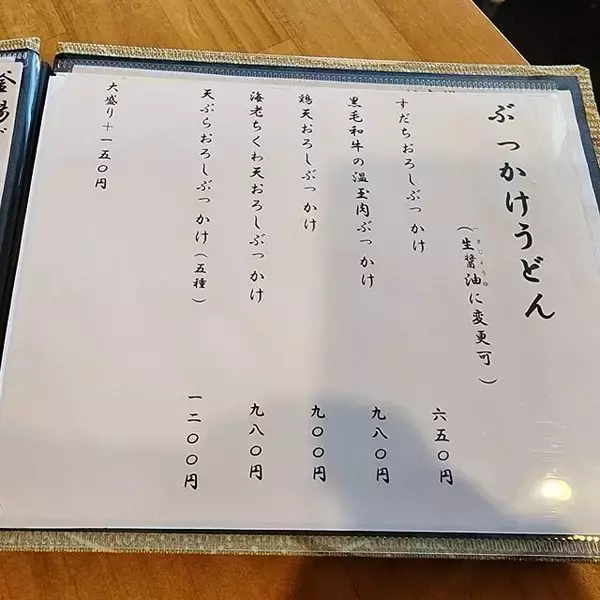 ぶっかけうどん
(生醤油に変更可)
きじょうゆ
すだちおろしぶっかけ 六五〇円
黒毛和牛の温玉肉ぶっかけ 九八〇円
鶏天おろしぶっかけ 九〇〇円
海老ちくわ天おろしぶっかけ 九八〇円
天ぷらおろしぶっかけ(五種) 一二〇〇円
大盛り+一五〇円
釜揚げ